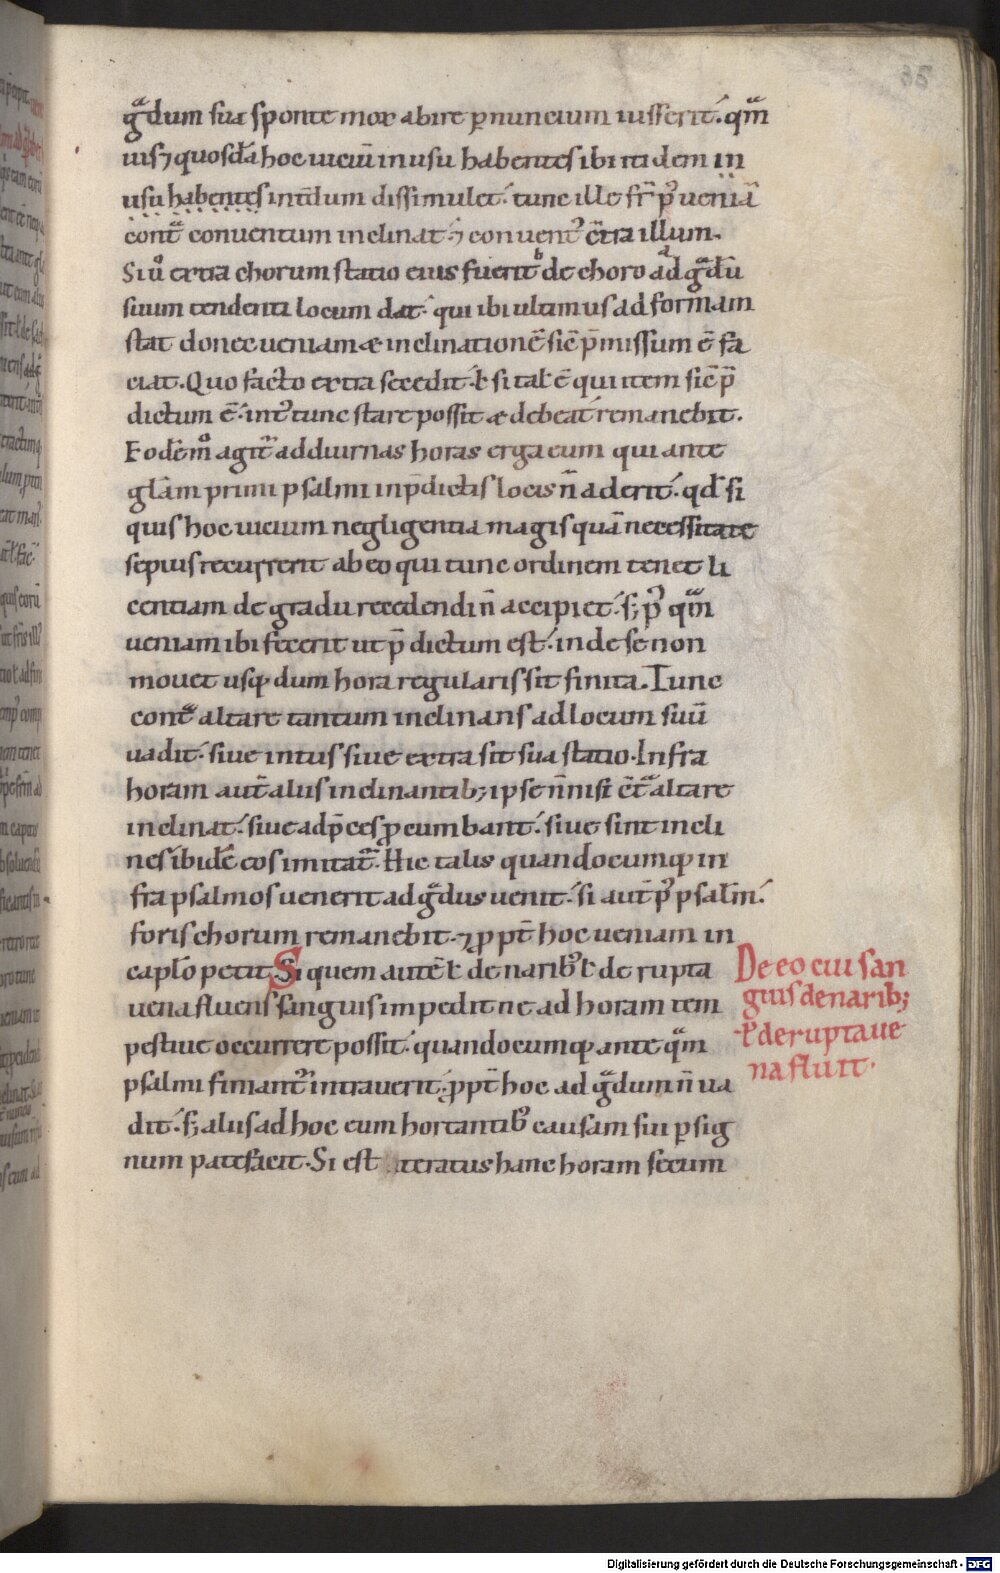 35
gͣdum sua sponte mox abire ꝑ nuncium iusserit. qͣm
uis ⁊ quosdā hoc uiciū in usu habentes ibi itidem in
usu habentes int̄dum dissimulet. tunc ille fr̄ pꝰ ueniā
cont̄ conuentum inclinat. ⁊ conuentꝰ c̄tra illum.
Si uͦ extra chorum statio eius fuerit de choro ad gͣdū
suum tendenti locum dat. qui ibi ultimus ad formam
stat donec ueniam æ inclinationē sic̄ p̄missum ē fa
ciat. Quo facto extra secedit. ł si tał ē qui item sic̄ p̄
dictum ē. intꝰ tunc stare possit æ debeat remanebit.
Eodē mͦ agit᷑ ad diurnas horas erga eum qui ante
glām primi psalmi in p̄dictis locis n̄ aderit. qđ si
quis hoc uicium negligentia magis quā necessitate
sepius recurrerit ab eo qui tunc ordinem tenet li
centiam de gradu recedendi n̄ accipiet. s; pꝰ qͣm
ueniam ibi fecerit ut p̄dictum est. inde se non
mouet usqꝫ dum hora regularis sit finita. Tunc
contͣ altare tantum inclinans ad locum suū
uadit. siue intus siue extra sit sua statio. Infra
horam aut̄ aliis inclinantib; ipse n̄ nisi c̄tͣ altare
inclinat. siue ad p̄ces ꝓcumbant. siue sint incli
nes ibidē eos imitat᷑. Hic talis quandocumqꝫ in
fra psalmos uenerit ad gͣdus uenit. si aut̄ pꝰ psalm̄.
foris chorum remanebit. ⁊ ꝓpt̄ hoc ueniam in
caplo petit. Si quem autē ł de naribꝰ ł de rupta
De eo cui san
uena fluens sanguis impedit ne ad horam tem
guis de narib;
pestiue occurrere possit. quandocumqꝫ ante qͣm
ł de rupta ue
psalmi finiant᷑ intrauerit. ꝓpt̄ hoc ad gͣdum n̄ ua
na fluit.
dit. s; aliis ad hoc eum hortantibꝰ causam sui ꝑ sig
num patefacit. Si est iteratus hanc horam secum
Digitalisierung gefördert durch die Deutsche Forschungsgemeinschaft - DFG